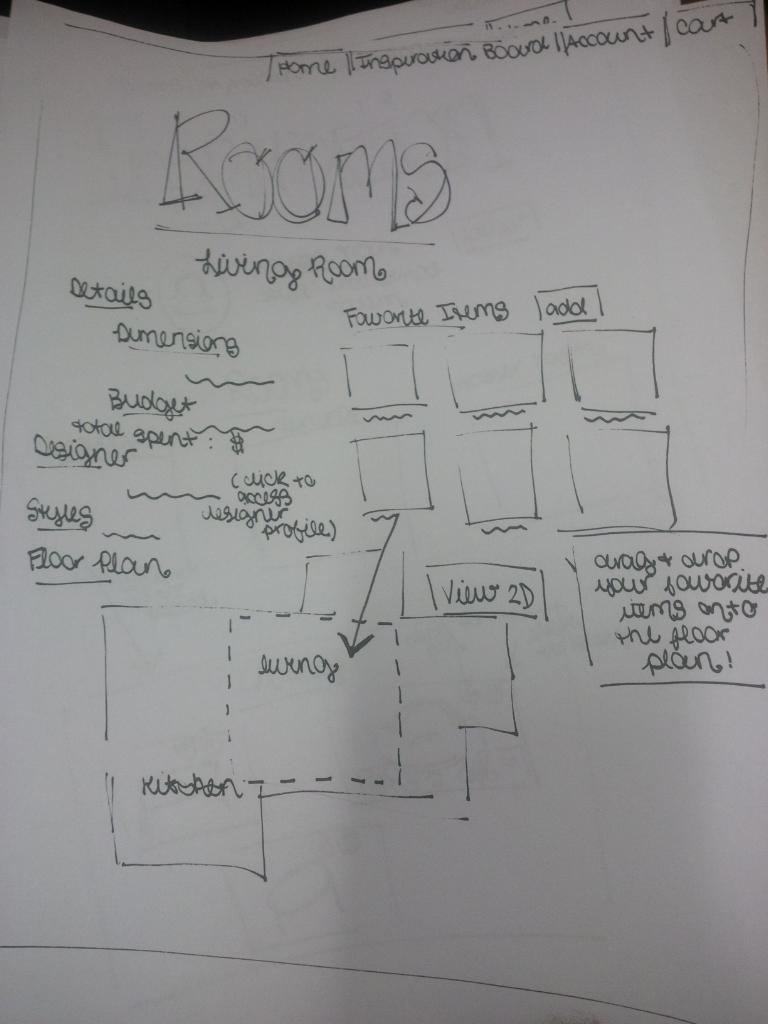 Home Inspiration Board Account Cart
Rooms
Living Room
Details
Dimensions
Favorite Items add
Budget
total spent : $
Designer
(click to
access
designer
profile)
Styles
Floor Plan
View 2D
drag + drop
your favorite
items onto
the floor
plan!
living
Kitchen